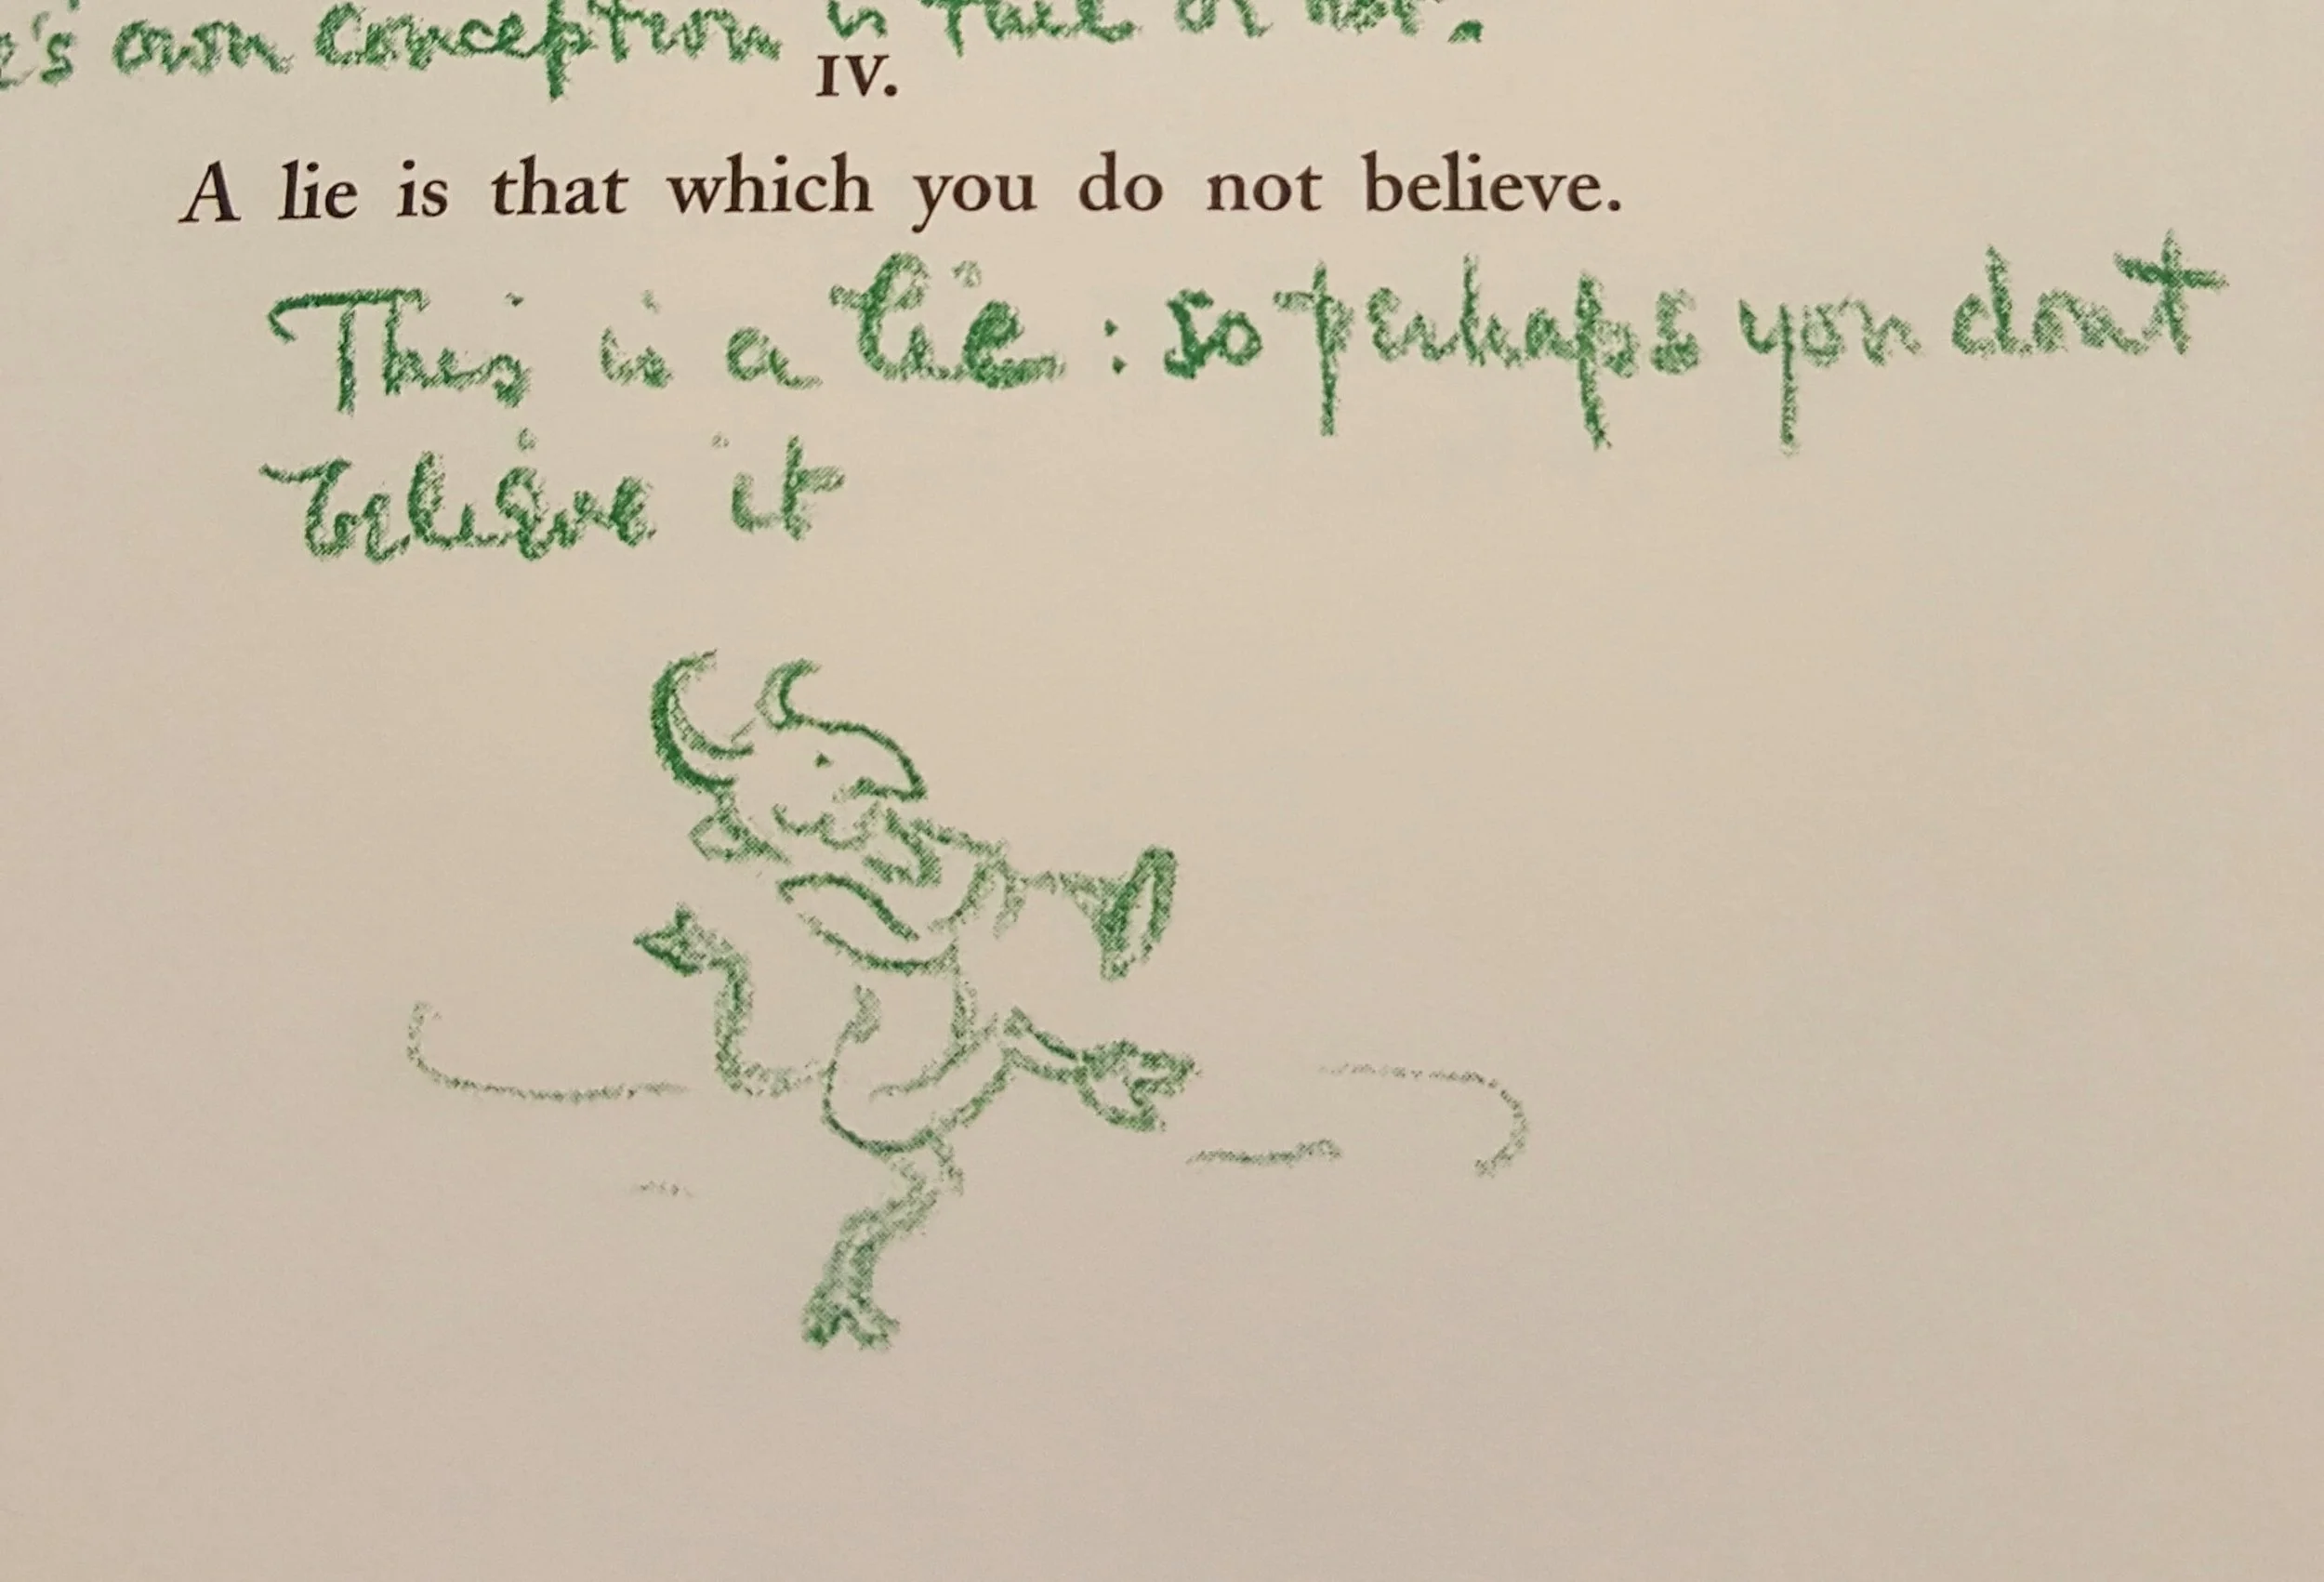 's own conception is full or not.
IV.
A lie is that which you do not believe.
This is a lie: so perhaps you dont
believe it